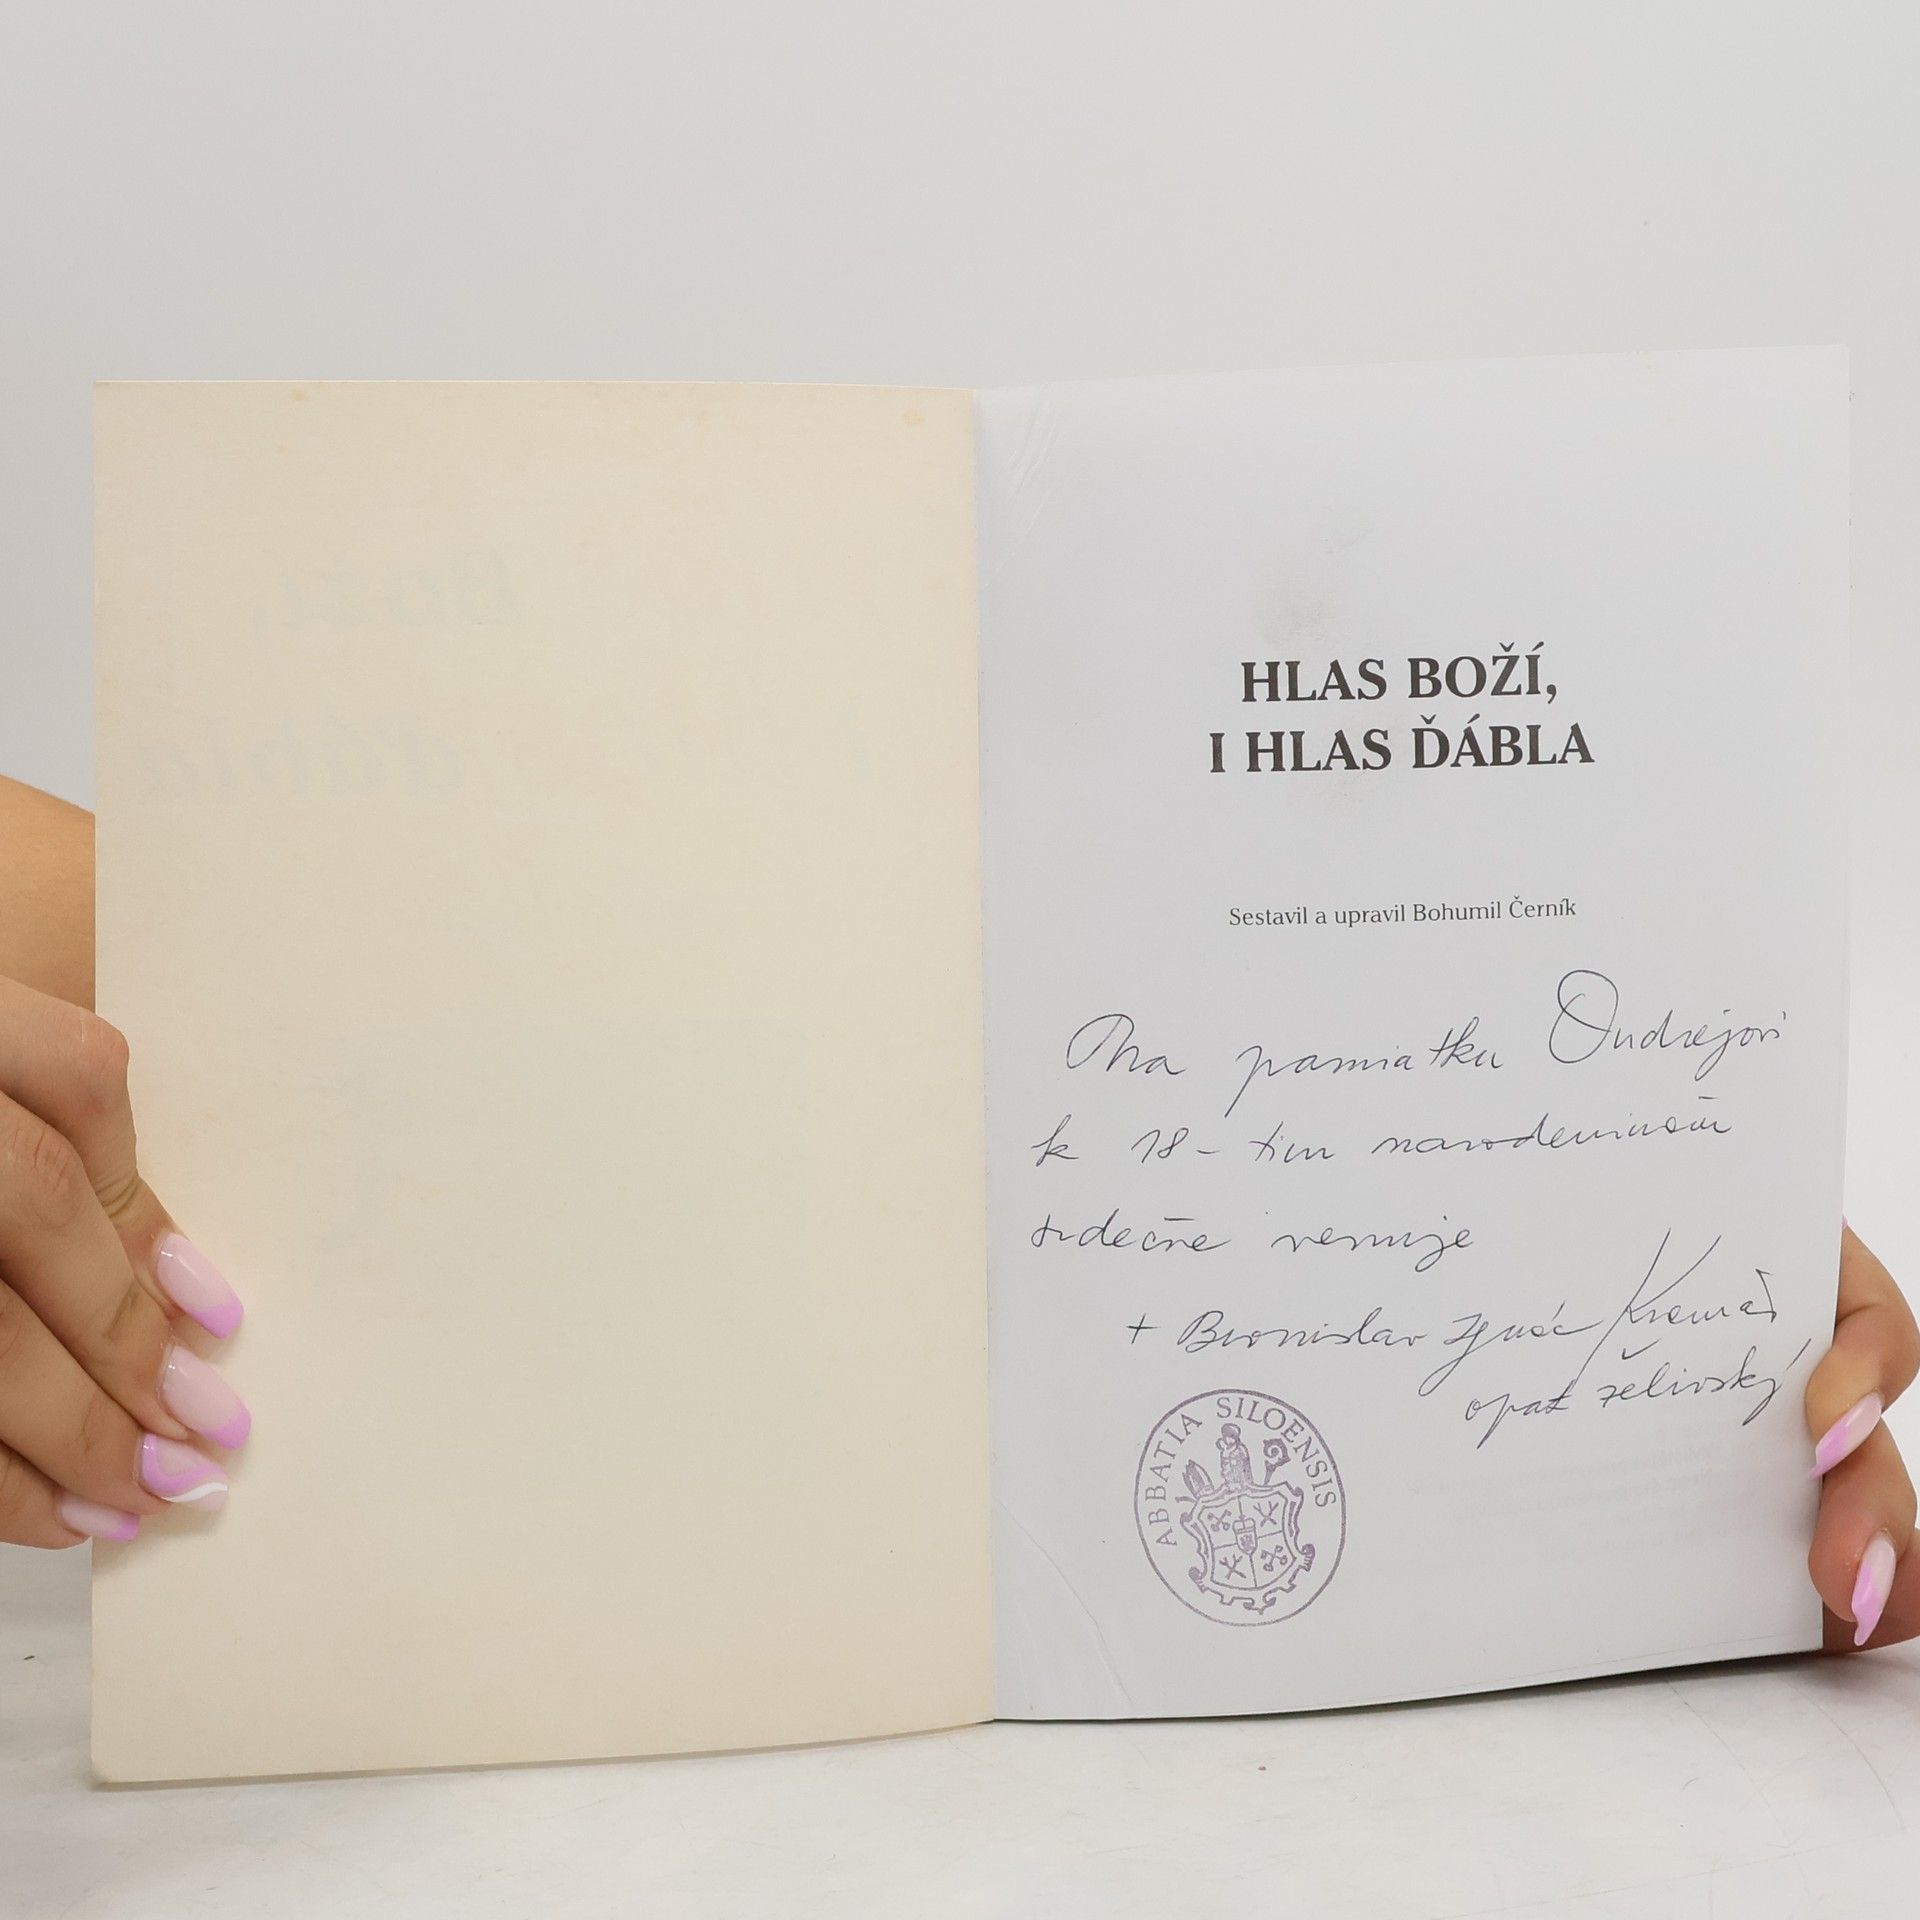 HLAS BOŽÍ,
I HLAS ĎÁBLA
Sestavil a upravil Bohumil Černík
Na pamiatku Ondrejovi
k 18-tim narodeninám
srdečne venuje
+ Bronislav Ignác Kramár
opat želivský
ABBATIA SILOENSIS